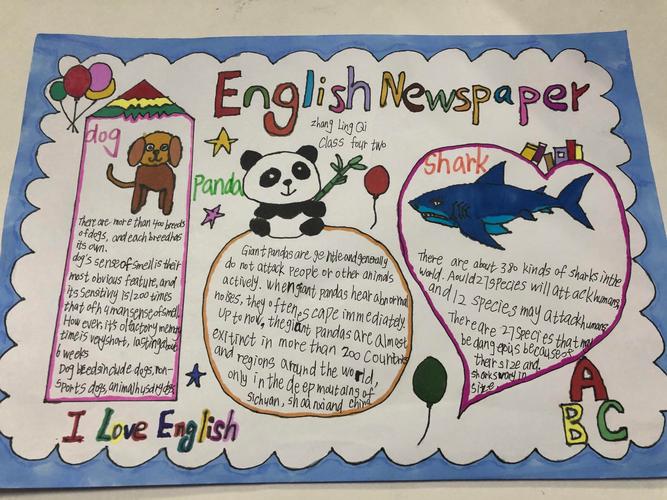 English Newspaper
zhang Ling Qi
Class four two
dog
There are more than 400 breeds
of dogs, and each breed has
its own.
dog's sense of smell is their
most obvious feature, and
its sensitivity is 1200 times
that of human sense of smell
However its olfactory memory
time is very short, lasting about
6 weeks
Dog breeds include dogs, non-
sports dogs, animal husdry dogs
Panda
Giant Pandas are gentle and generally
do not attack people or other animals
actively. when giant pandas hear abnormal
noises, they often scape immediately.
Up to now, the giant pandas are almost
exitinct in more than 200 countries
and regions around the world,
only in the deep moutains of
sichuan, shaanxi and china
Shark
There are about 380 kinds of sharks in the
world. Aould 27 species will attack humans,
and 12 species may attack humans
There are 27 species that may
be dangepus because of
their size and.
sharks vary in
size.
I Love English
A
B C